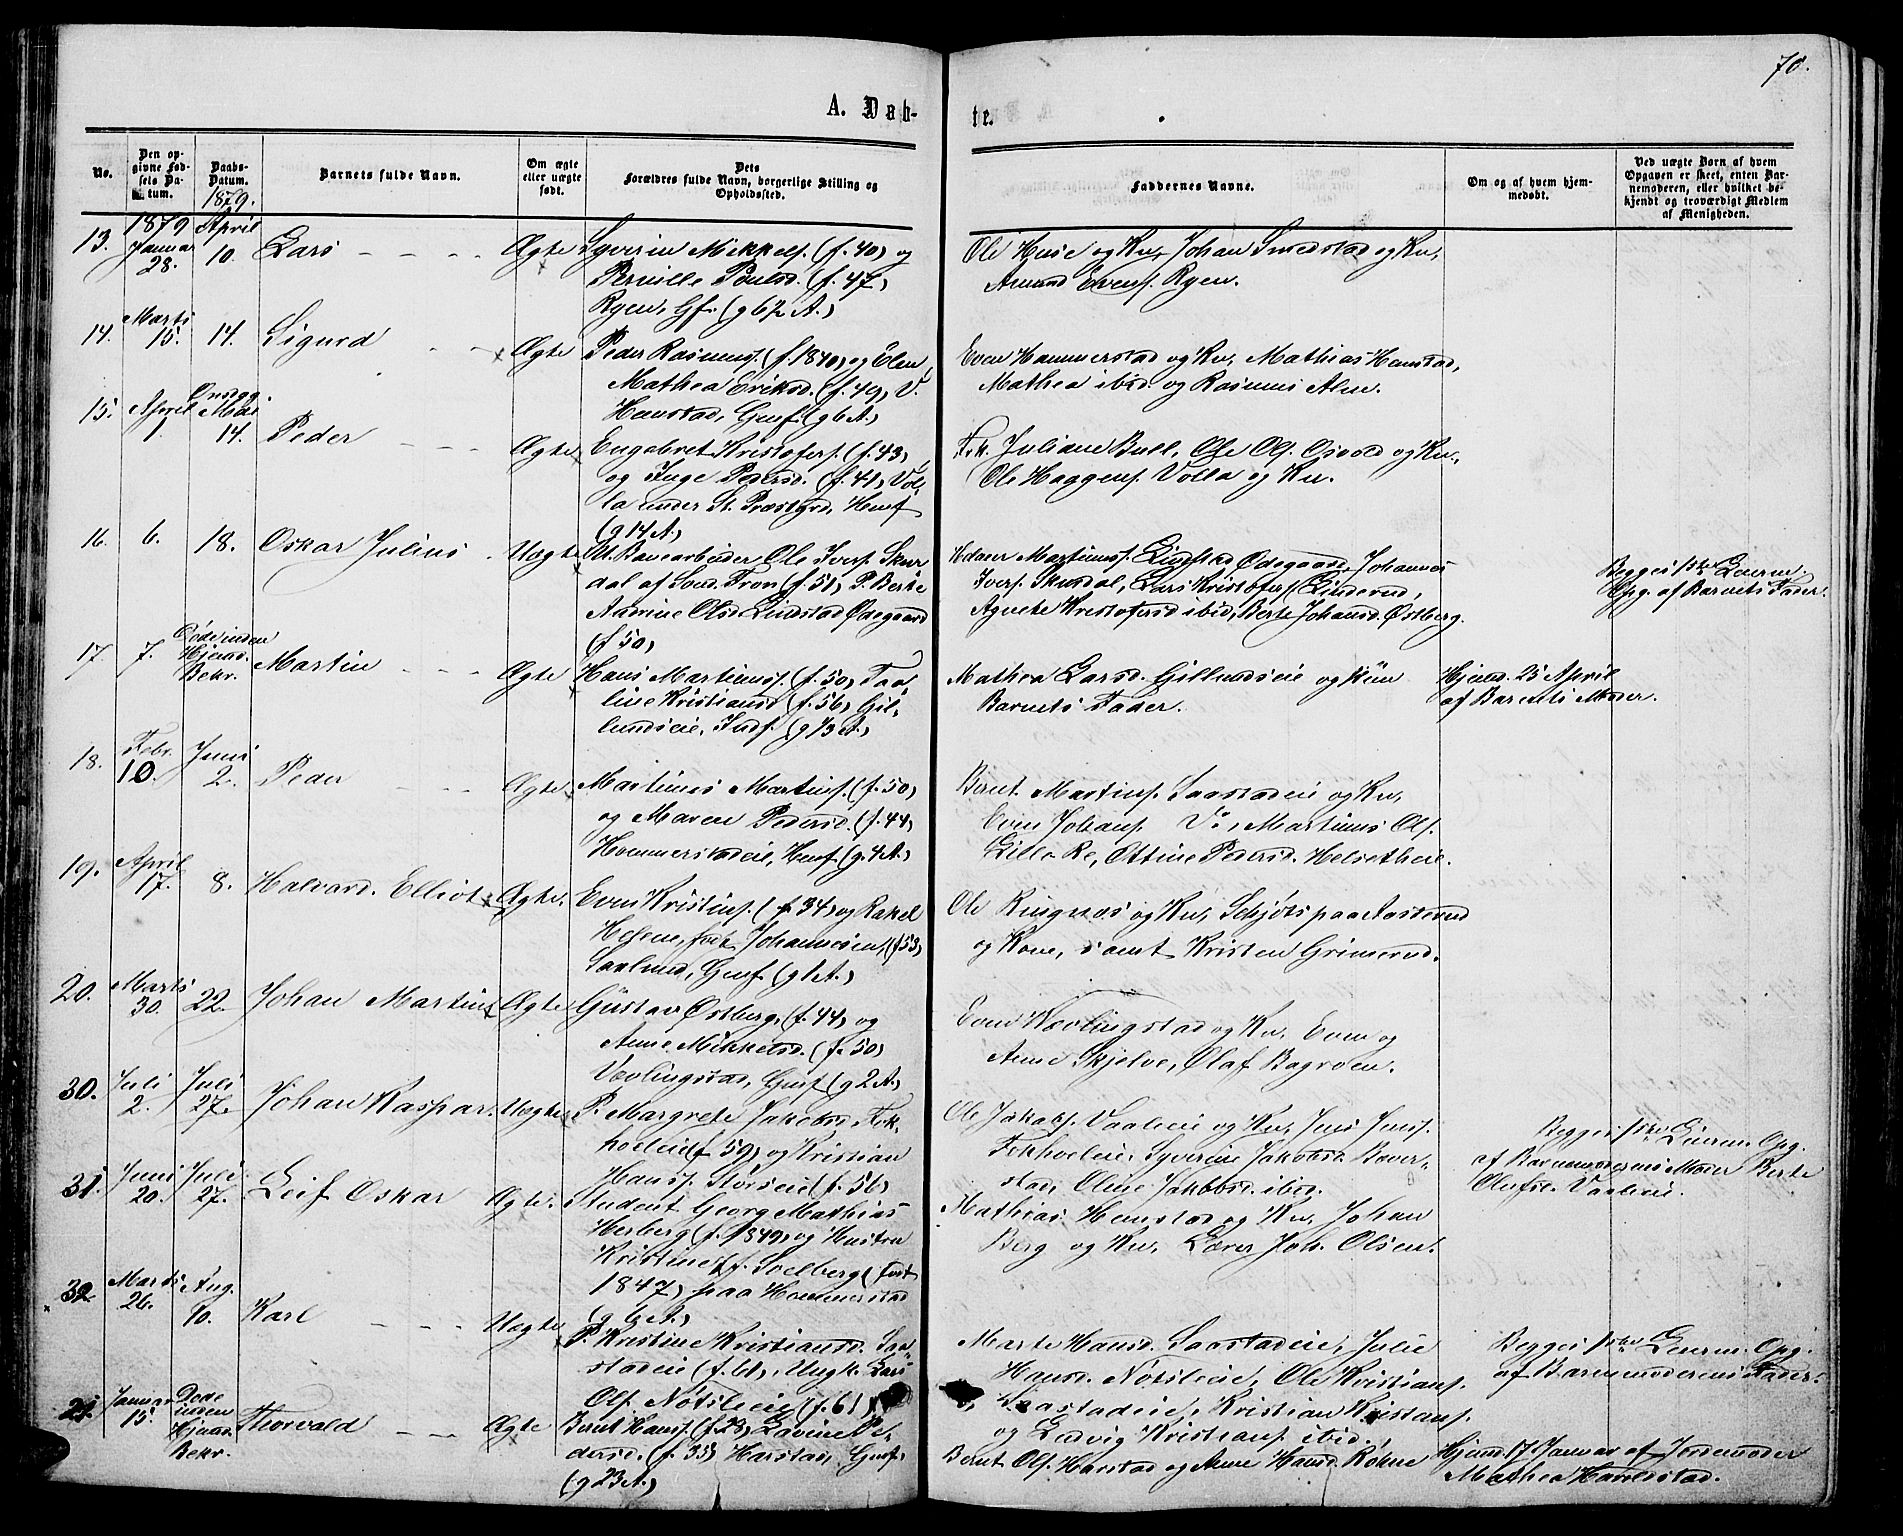 70.
A. Dåb-
te.
No.
Den op-
givne Fød-
sels Da-
tum.
Daabs-
Datum.
1879.
Barnets fulde Navn.
Om ægte
eller uægte
født.
Dets
Forældres fulde Navn, borgerlige Stilling og
Opholdssted.
Faddernes Navne.
Om og af hvem hjem-
medøbt.
Ved uægte Børn af hvem
Opgaven er skeet, enten Bar-
nemoderen, eller hvilket be-
kjendt og troværdigt Medlem
af Menigheden.
1879 April
13. Januar 28. 10. Lars Ægte Syverin Mikkels. (f. 40) og
Pernille Poulsd. (f. 47)
Ryen, Gf. (g 62 A.)
Ole Huse og Kv, Johan Smedstad og Kv,
Amund Evens. Ryen.
14. Marts 15. 14. Sigurd Ægte Peder Rasmuss. (f. 1840) og Elen
Mathea Eriksd. (f. 49), V.
Hemstad, Gmf. (g 6 A.)
Even Hammerstad og Kv, Mathias Hemstad,
Mathea ibid. og Rasmus Alen.
15. April 1. Mai 14. Peder Ægte Engebret Kristofers. (f. 43)
og Inge Pedersd. (f. 41) Vol-
la under St. Præstgrd, Hmf
(g 14 A.)
Frk. Juliane Bull, Ole Ols. og Kv.,
Ole Haagens. Volla og Kv.
16. 6. 18. Oskar Julius Uægte U. Banearbeider Ole Ivers. Skur
dal af Sønd. Fron (f. 51) P. Berte
Andrine Olsd. Lindstad Ødegaard
(f 50)
Martinuss. Lindstad Ødegaard, Johannes
Ivers. Skurdal, Lars Kristofers. Linderud,
Agnethe Kristofersd ibid, Berte Johansd. Østberg.
Begges 1ste Leierm.
Opg. af Barnets Fader.
17. 7. Døde inden
Hjemd.
Bekr. Martin Ægte Hans Martinuss. (f. 50) Taa
line Kristiansd (f. 56) Gil-
lundseie, Indf. (g 13 A.)
Mathea Larsd. Gillundseie og kun
Barnets Fader.
Hjemd. 25 April
af Barnets Moder.
18. Febr. 10. Juni 2. Peder Ægte Martinus Martins. (f. 50)
og Maren Pedersd. (f. 44)
Hammerstadeie, Hmf (g. 4 A.)
Bernt Martins. Saastadeie og Kv,
Even Johans. V., Martinus Ols.
Lille Re, Ottine Pedersd. Helsetheie.
19. April 17. 8. Halvard Elliot Ægte. Even Kristins. (f. 34) og Rakel
Helene, født Johannesen, (f 53)
Saxlund, Gmf. (g 1 A.)
Ole Ringnes og Kv, Schjøts paa Aasterud
og Kone, samt Kristen Grimerud.
20. Marts 30. 22. Johan Martin Ægte Gustav Østberg, (f. 44) og
Anne Mikkelsd. (f. 50)
Vævlingstad, Gmf (g 2 A.)
Even Kævlingstad og Kv, Even og
Anne Skjelve, Olaf Bagroen.
30. Juli 2. Juli 27. Johan Kaspar. Uægte P. Margrete Jakobsd. Fok-
holeie (f 59) og Kristian
Hanss. Størseie (f. 56)
Ole Jakobs. Vaaleie og Kv, Jens Jenss.
Fokholeie, Syverine Jakobsd. Baver-
stad, Oline Jakobsd. ibid.
Begges 1ste Leierm. Opg.
af Barnemoderens Moder Berte
Olufsd. Vaaleie.
31. Juni 20. Juli 27. Leif Oskar Ægte. Student Georg Mathias
Herberg (f. 1849) og Hustru
Kristine f. Solberg (født
1847) paa Hammerstad
(g 6 A.)
Mathias Hemstad og Kv, Johan
Berg og Kv, Lærer Joh. Olsen.
32. Marts 26. Aug. 10. Karl Uægte P. Kristine Kristiansd. Saa-
stadeie (f. 61), Ungk. Lars
Ols. Nøtsleie (f. 61)
Marte Hansd. Saastadeie, Julie
Hansd. Nøtsleie, Ole Kristians.
Saastadeie, Kristian Kristians.
og Ludvig Kristians. ibid.
Begges 1ste Leierm. Opg.
af Barnemoderens Fader.
21. Januar 15. Døde
inden
Hjemd.
Bekr. Thorvald Ægte Bernt Hanss. (f. 28) Lavine Pe-
dersd. (f. 35) Harstad, Gmf.
(g 23 A.)
Bernt Ols. Harstad og Anne Hansd. Røhne
Hjemd 17 Januar af Jordemoder
Mathea Harildstad.